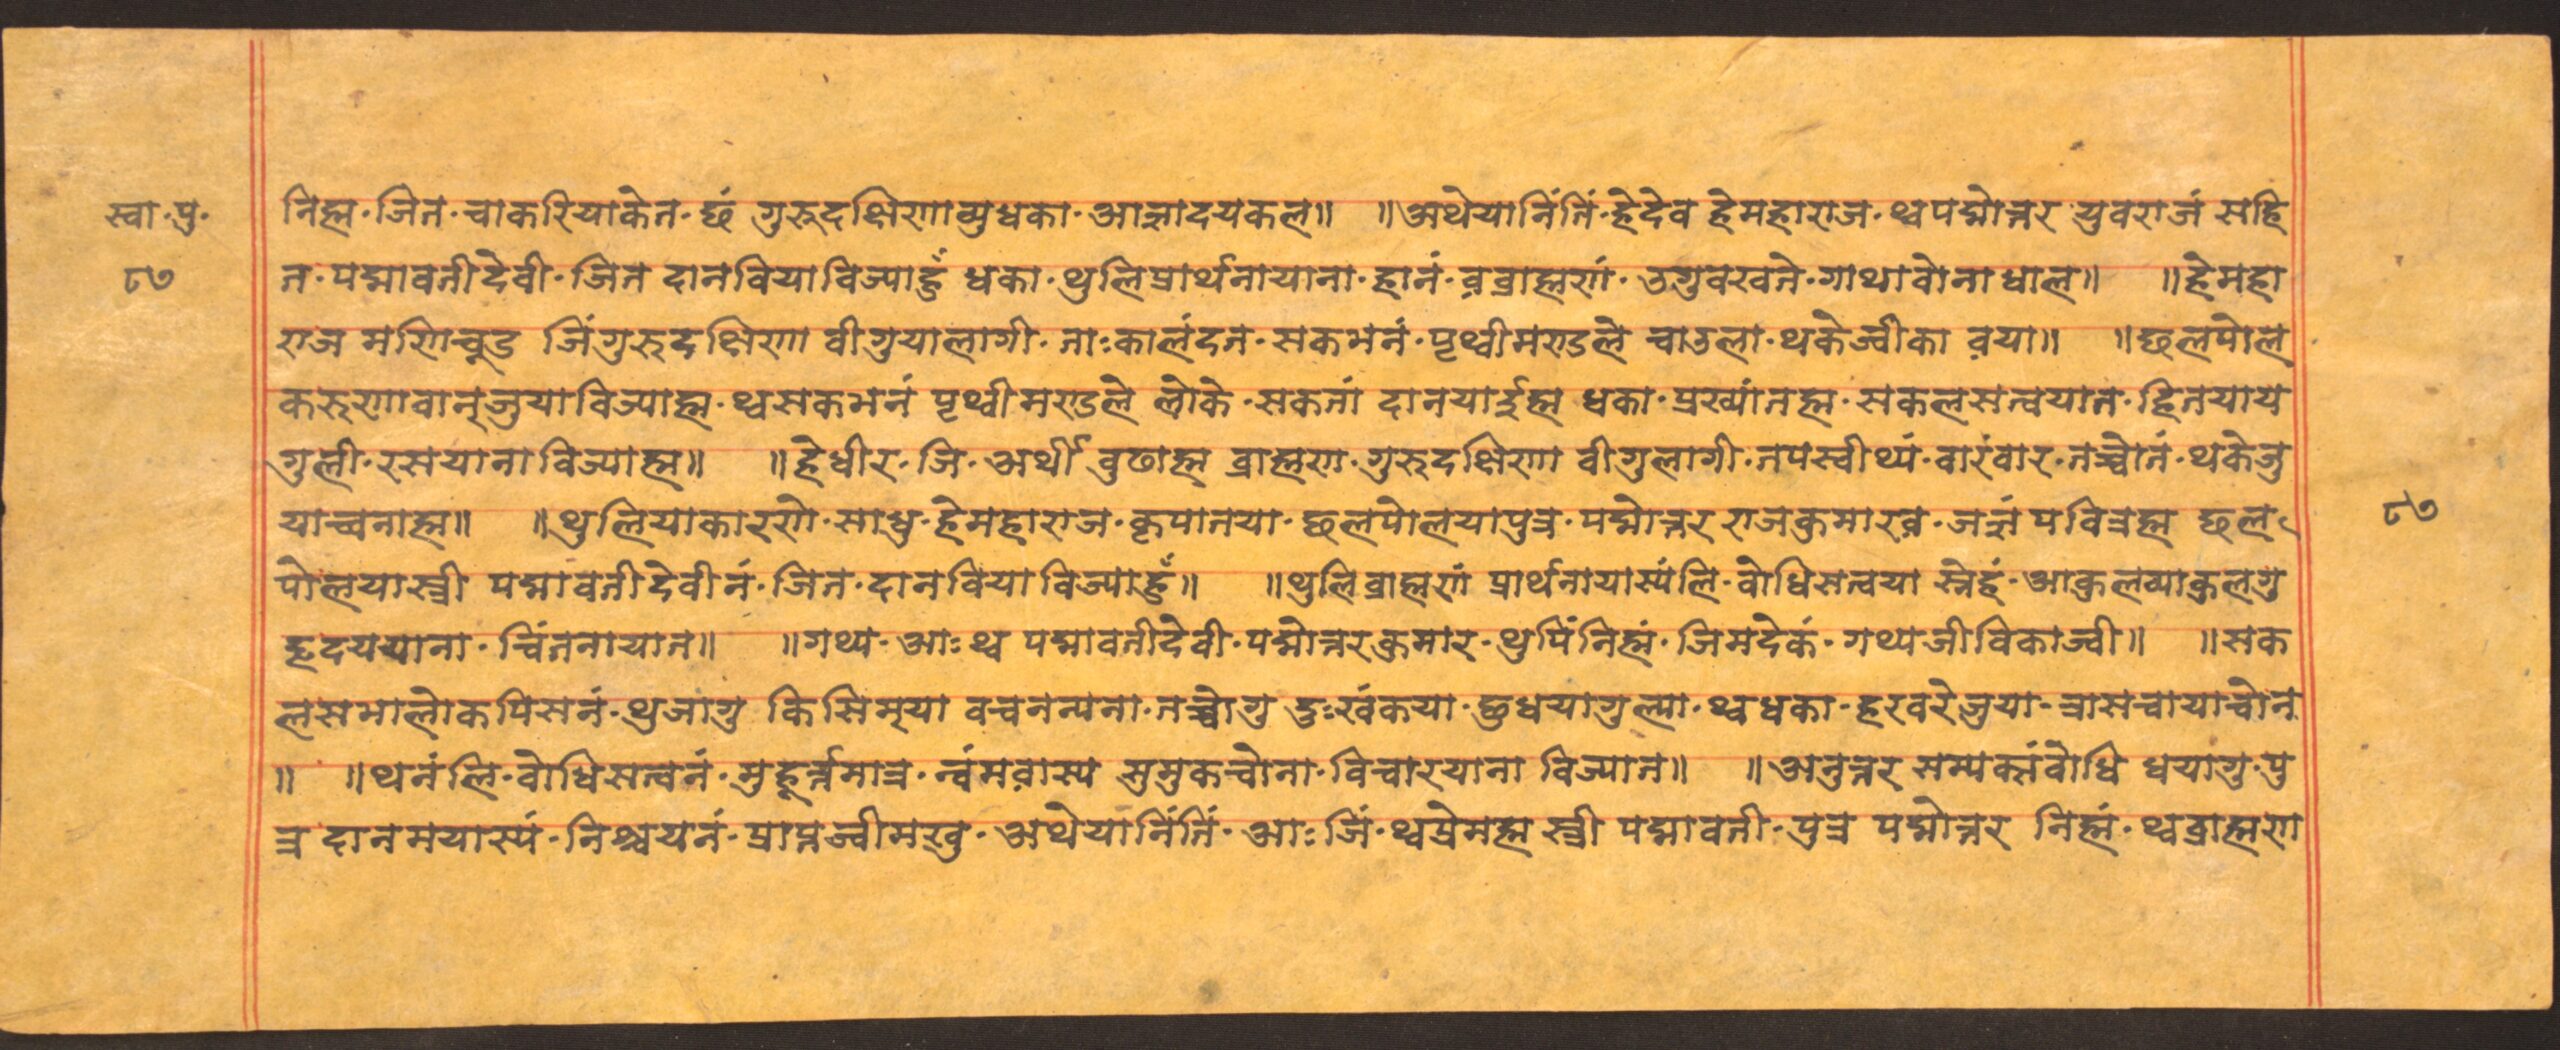 स्वा·पु·
८७
निह्म·जित·चाकरियाकेन·छं गुरुदक्षिणाब्युधका·आज्ञादयकल॥ ॥अथेयानिंतिं·हेदेव हेमहाराज·थ्वपद्मोत्तर युवराजं सहि
त·पद्मावतीदेवी·जित दानवियाविज्याहुँ धका·थुलिप्रार्थनायाना·हानं·व़ब्राह्मणं·उगुवखते·गाथावोनाधाल॥ ॥हेमहा
राज मणिचूड जिंगुरुदक्षिणा वीगुयालागी·नाःकालंदन·सकभनं·पृथ्वीमण्डले चाउला·थकेज्वीका व़या॥ ॥छलपोल
करुणावान्‌जुयाविज्याह्म·थ्वसकभनं पृथ्वीमण्डले लोके·सकतां दानयाईह्म धका·प्रख्यांतह्म·सकलसत्वयात·हितयाये
गुली·रसयानाविज्याह्म॥ ॥हेधीर·जि·अर्थी बुढाह्म ब्राह्मण·गुरुदक्षिणा वीगुलागी·तपस्वीथ्यं·वारंवार·तच्चोतं·थकेजु
याच्वनाह्म॥ ॥थुलियाकारणे·साधु·हेमहाराज·कृपातया·छलपोलयापुत्र·पद्मोत्तर राजकुमारव़·जन्नंपवित्रह्म छल
पोलयास्त्री पद्मावतीदेवीनं·जित·दानवियाविज्याहुँ॥ ॥थुलिब्राह्मणं प्रार्थनायास्यंलि·वोधिसत्वया स्नेहं·आकुलव्याकुलगु
हृदययाना·चिंतनायात॥ ॥गथ्य·आः थ्व पद्मावतीदेवी·पद्मोत्तरकुमार·थुपिंनिह्मं·जिमदेकं·गथ्यजीविकाज्वी॥ ॥सक
लसभालोकपिसनं·थुजागु किसिम्‌या वचनन्यना·तच्चोगु दुःखंकया·छुधयागुल्या·थ्वधका·हरवरेजुया·त्रासचायाच्वोन
॥ ॥थनंलि·वोधिसत्वनं·मुहूर्त्तमात्र·न्वंमव़ास्य सुमुकच्वोना·विचारयाना विज्यात॥ ॥अनुत्तर सम्यक्संवोधि धयागु·पु
त्र दानमयास्यं·निश्चयनं·प्राप्तज्वीमखु·अथेयानिंतिं·आः जिं·थ्वप्रेमह्म स्त्री पद्मावती·पुत्र पद्मोत्तर निह्मं·थ्वब्राह्मण
८७